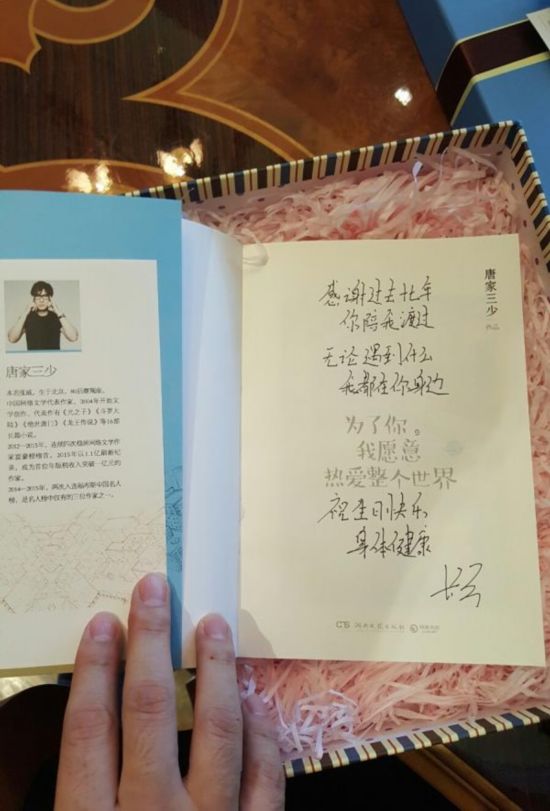 唐家三少
本名张威，生于北京，80后摩羯座。
中国网络文学代表作家。2004年开始文
学创作，代表作有《光之子》《斗罗大
陆》《绝世唐门》《龙王传说》等16部
长篇小说。
2012—2015年，连续四次稳居网络文学作
家富豪榜榜首。2015年以1.1亿刷新纪
录，成为首位年版税收入突破一亿元的
作家。
2014—2015年，两次入选福布斯中国名人
榜，是名人榜中仅有的三位作家之一。
唐家三少
作品
感谢过去年
你陪我渡过
无论遇到什么
我都在你身边
为了你。
我愿意
热爱整个世界
祝生日快乐
身体健康
长弓
湖南文艺出版社